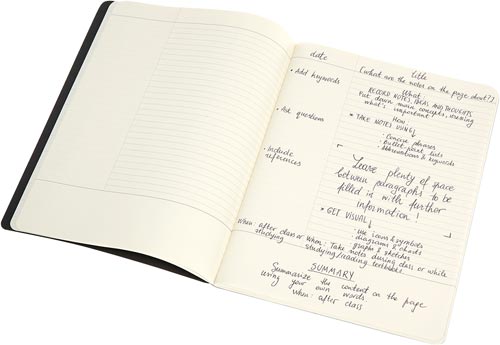 date
title
(what are the notes on the page about?)
• Add keywords
What:
RECORD NOTES, IDEAS AND THOUGHTS
Put down main concepts, meaning
what's important
• Ask questions
How:
* TAKE NOTES USING
• Concise phrases
• Bullet point lists
• Abbreviations & keywords
• Include
references
Leave plenty of space
between paragraphs to be
filled in with further
information!
* GET VISUAL
• use icons & symbols
• diagrams & charts
• graphs & sketches
When: after class or
studying
When: Take notes during class or while
studying/reading textbooks
SUMMARY
Summarize the content on the page
using your own words.
When: after class